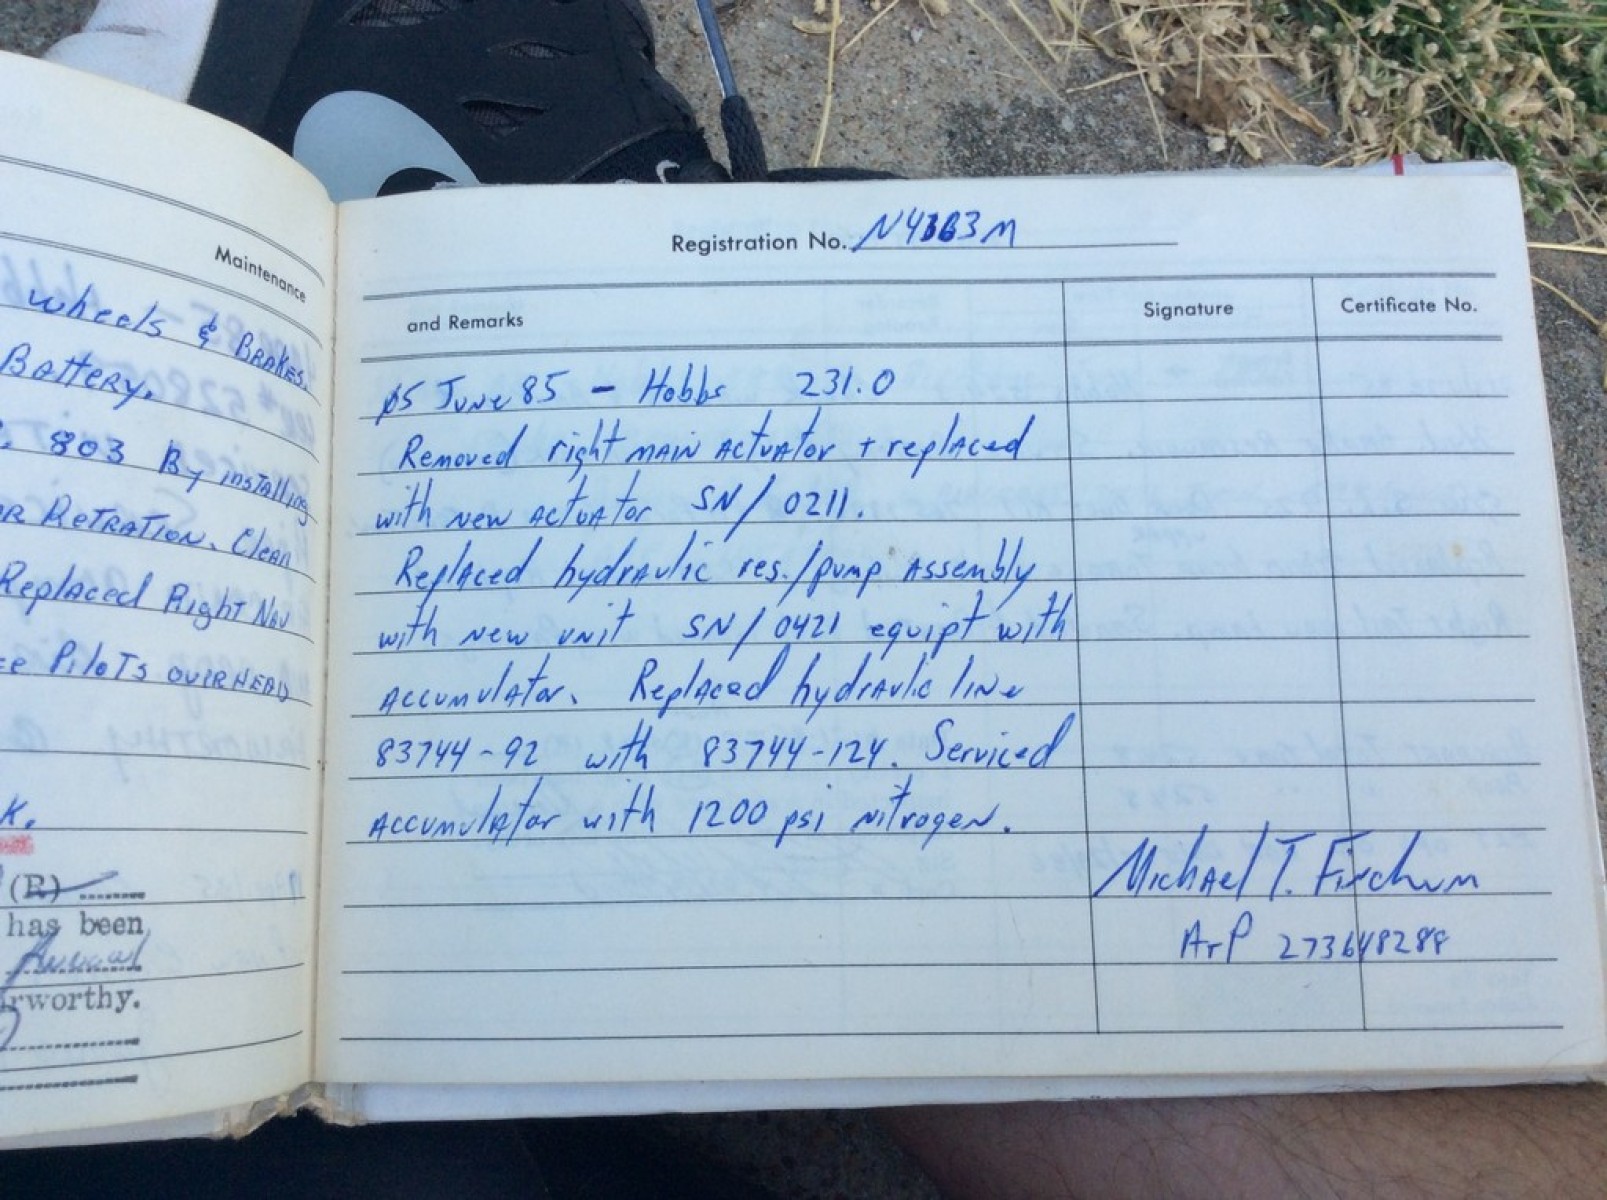 Maintenance
wheels & Brakes.
Battery.
803 By installing
Retration. Clean
Replaced Right Nav
Pilots overhead
K.
(R)
has been
Annual
rworthy.
Registration No. N4363M
and Remarks
Signature
Certificate No.
05 June 85 - Hobbs 231.0
Removed right main actuator + replaced
with new actuator SN/0211.
Replaced hydraulic res./pump assembly
with new unit SN/0421 equipt with
accumulator. Replaced hydraulic line
83744-92 with 83744-124. Serviced
accumulator with 1200 psi nitrogen.
Michael T.
A+P 273648288